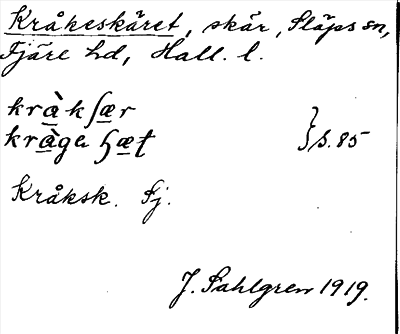 Kråkeskäret, skär, Släps sn,
Fjäre hd, Hall. l.
kràkʃær
kràgaʃæt } s. 85
Kråksk. Fj.
J. Sahlgren 1919.